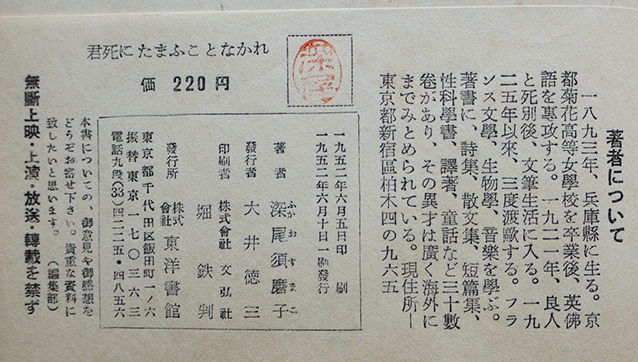 著者について
一八九三年、兵庫縣に生る。京
都菊花高等女學校を卒業後、英佛
語を專攻する。一九二一年、良人
と死別後、文筆生活に入る。一九
二五年以來、三度渡歐する。フラ
ンス文學、生物學、音樂を學ぶ。
著書に、詩集、散文集、短篇集、
性科學書、譯著、童話など三十數
卷があり、その異才は廣く海外に
までみとめられている。現住所ー
東京都新宿區柏木四の九六五
君死にたまふことなかれ
價 220円
一九五二年六月五日印刷
一九五二年六月十日一刷發行
著者 深尾須磨子
ふかおすまこ
發行者 大井徳三
印刷者 株式會社 文弘社
堀鉄判
發行所 株式會社 東洋書館
東京都千代田區飯田町一ノ六
振替東京一七〇三六三
電話九段(33)四二二五・四八五六
本書についての、御意見や御感想を
どうぞお寄せ下さい。貴重な資料に
致したいと思います。(編集部)
無斷上映・上演・放送・轉載を禁ず